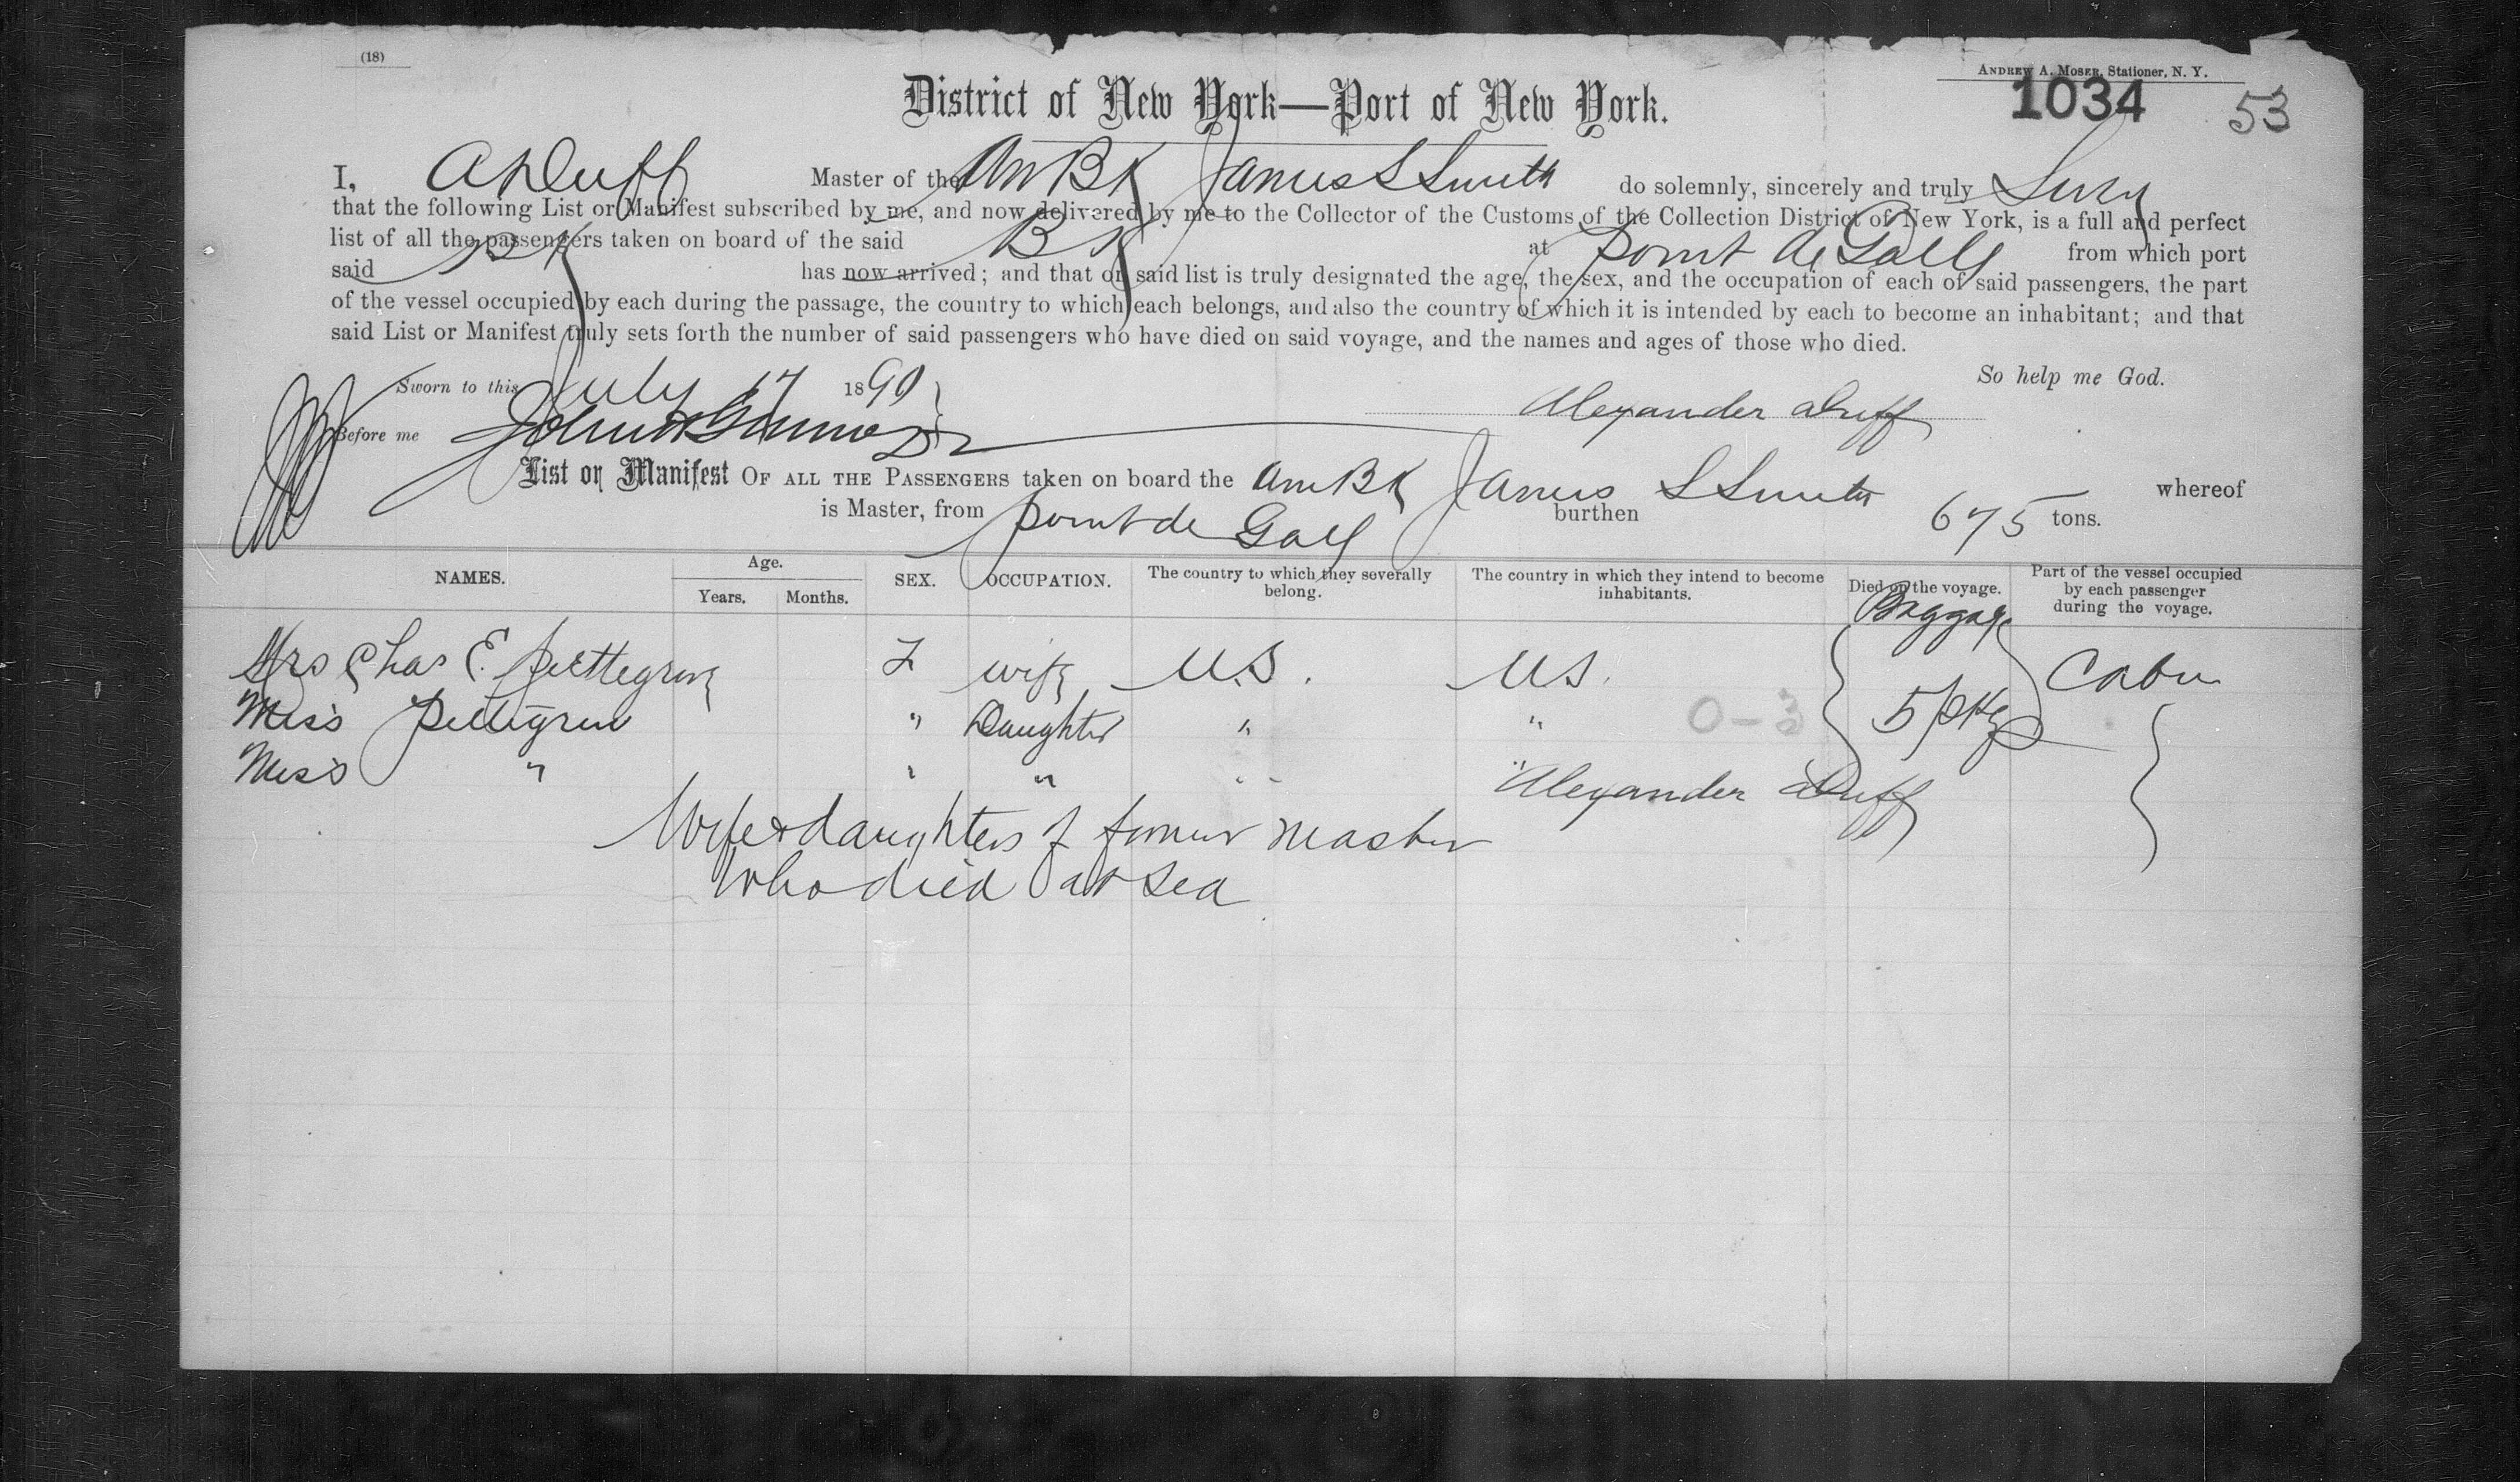 (18)
ANDREW A. MOSER, Stationer, N. Y.
District of New York—Port of New York.
1034 53
I, A Duff Master of the Am Bk James S Smith do solemnly, sincerely and truly
that the following List or Manifest subscribed by me, and now delivered by me to the Collector of the Customs of the Collection District of New York, is a full and perfect
list of all the passengers taken on board of the said Bk at Point de Galle from which port
said Bk has now arrived; and that on said list is truly designated the age, the sex, and the occupation of each of said passengers, the part
of the vessel occupied by each during the passage, the country to which each belongs, and also the country of which it is intended by each to become an inhabitant; and that
said List or Manifest truly sets forth the number of said passengers who have died on said voyage, and the names and ages of those who died.
So help me God.
Sworn to this July 17 1890
Alexander Duff
Before me John
List or Manifest OF ALL THE PASSENGERS taken on board the Am Bk James S Smith whereof
is Master, from Point de Gall burthen 675 tons.
NAMES. Age. Years. Months. SEX. OCCUPATION. The country to which they severally belong. The country in which they intend to become inhabitants. Died on the voyage. Part of the vessel occupied by each passenger during the voyage.
Baggage
Mrs Chas E. Pettegrew F wife U.S. U.S. Cabin
Miss Pettegrew " Daughter " " 0-3 5 pkgs
Miss " " " " "
Alexander Duff
Wife & daughters of former master
who died at sea